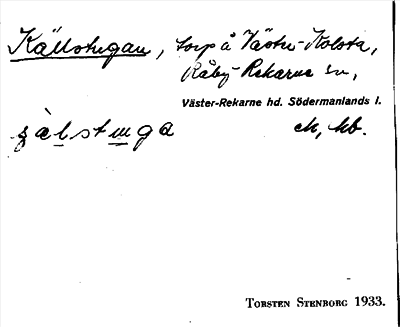 Källstugan, torp å Väster-Kolsta,
Råby-Rekarne sn,
Väster-Rekarne hd. Södermanlands l.
çälstuga ek, kb.
TORSTEN STENBORG 1933.